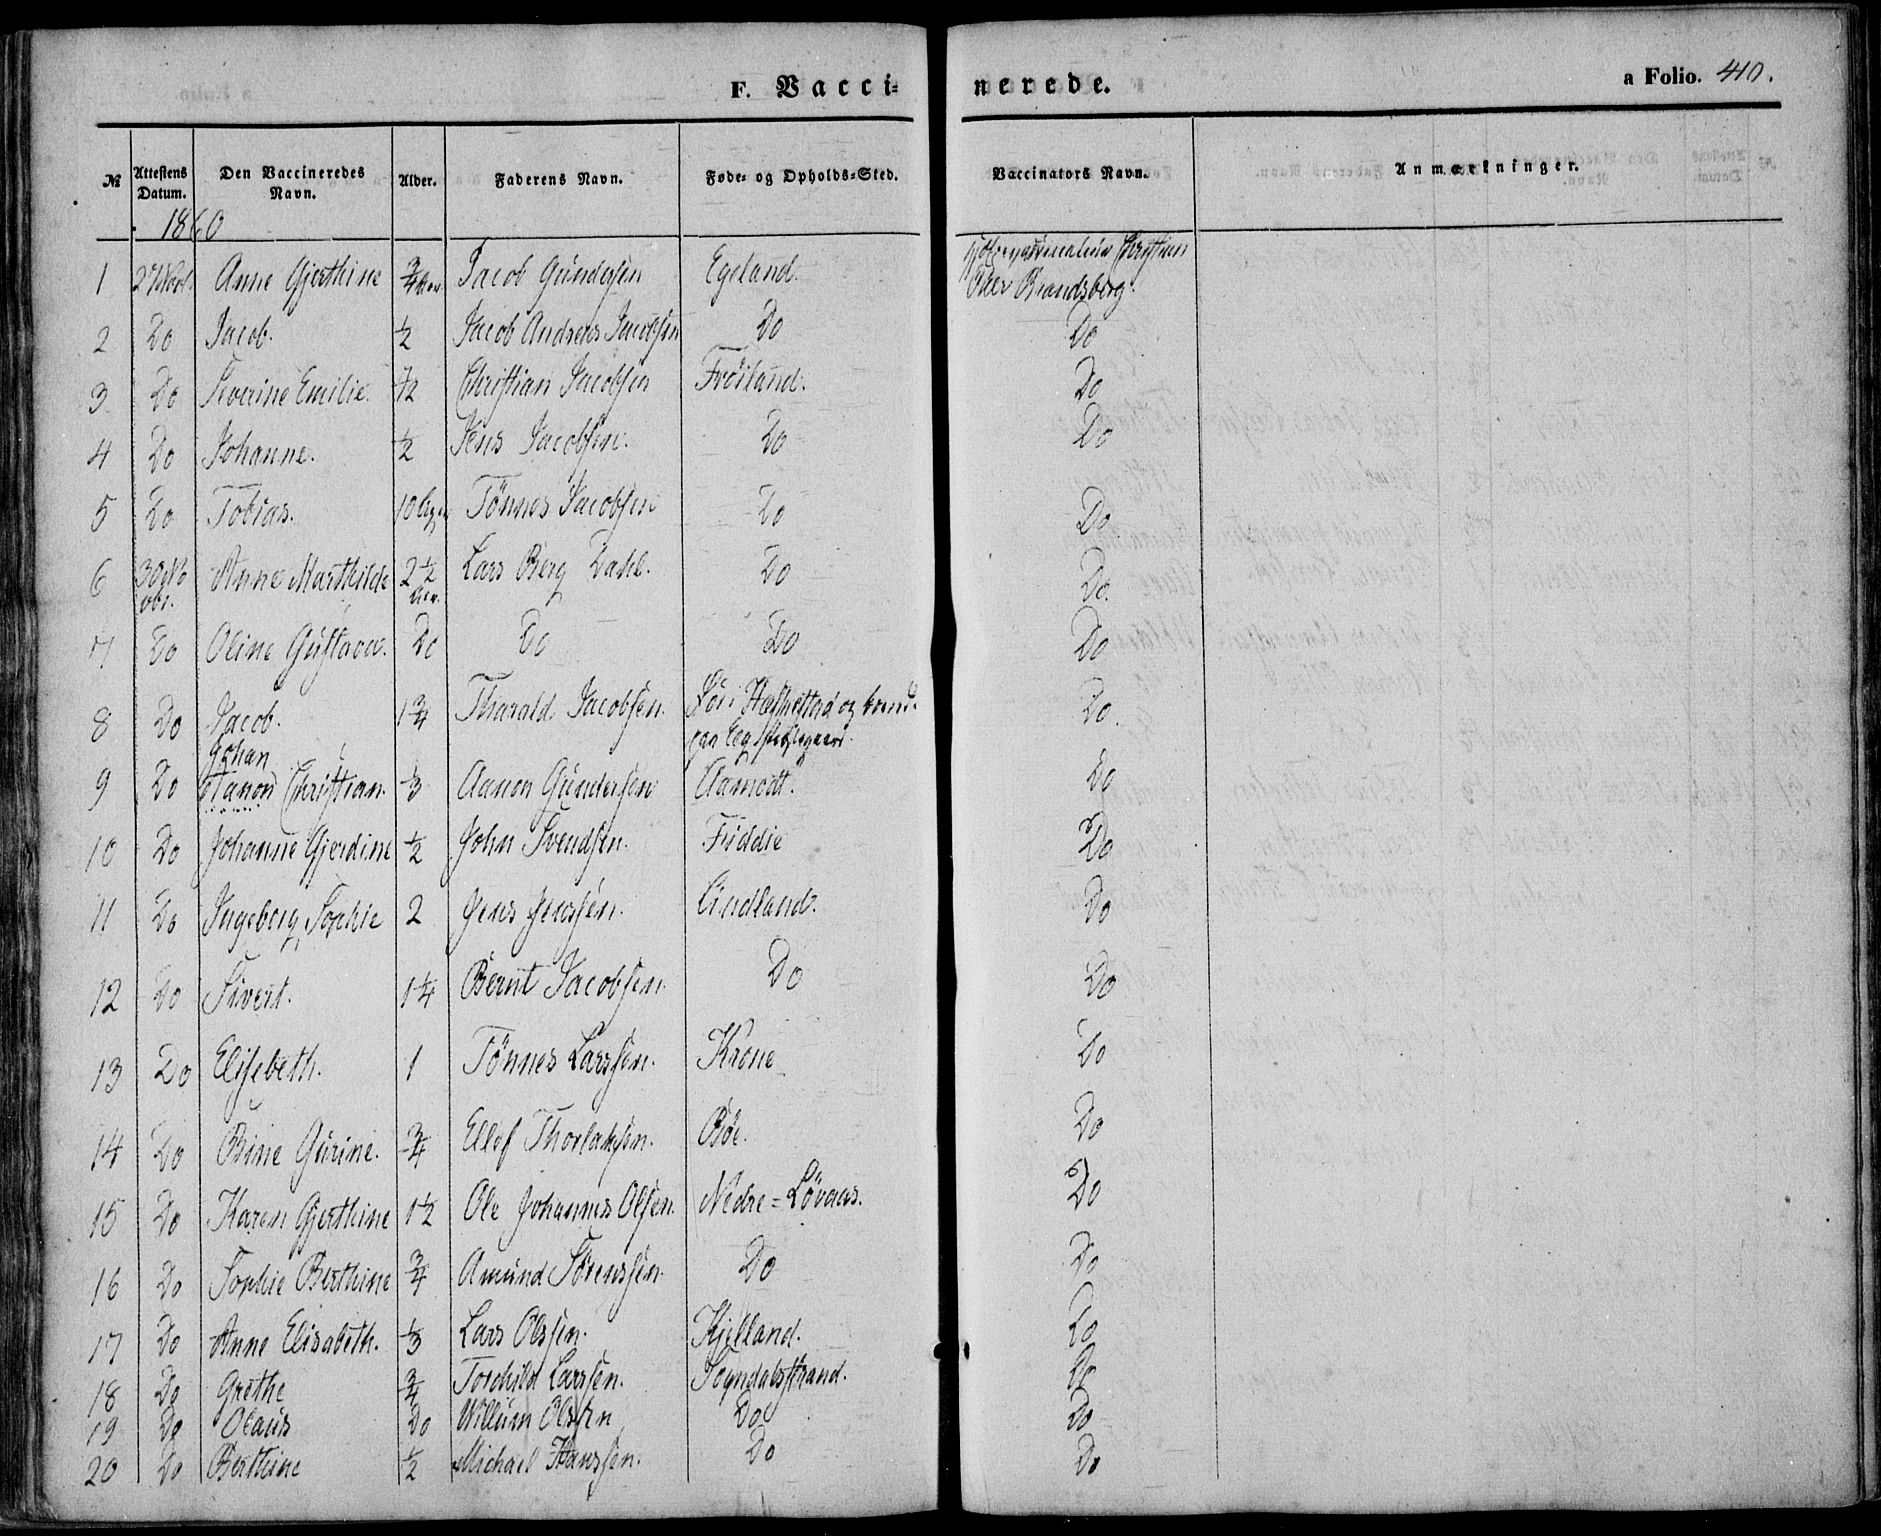 F. Vacci-
nerede.
a Folio. 410.
№ Attestens Datum. Den Vaccineredes Navn. Alder. Faderens Navn. Føde- og Opholds-Sted. Vaccinators Navn. Anmærkninger.
1860
1 27 Anne Gjerthine 3/4 Jacob Gundersen Egeland. Christian Brandsberg.
2 Do Jacob. 1/2 Jacob Andreas Jacobsen Do Do
3 Do Severine Emilie. 1/2 Christian Jacobsen Frøiland. Do
4 Do Johanne. 1/2 Jens Jacobsen. Do Do
5 Do Tobias. 10 Tönnes Jacobsen Do Do
6 30 Anne Marthilde 2 1/2 Lars Berg Dahl. Do Do.
7 Do Oline Gustava. Do Do Do Do
8 Do Jacob. 1 3/4 Tharald Jacobsen. Do.
Johan
9 Do Aanon Christian. 1/3 Aanon Gundersen Aamodt. Do
10 Do Johanne Gjerdine 1/2 John Svendsen. Fiddie Do
11 Do Ingeborg Sophie 2 Jens Jenssen. Lindland. Do
12 Do Sivert. 1 1/4 Bernt Jacobsen. Do Do
13 Do Elisebeth. 1 Tönnes Larssen. Krone Do
14 Do Bine Gurine. 3/4 Ellef Thorlaksen. Bøe. Do
15 Do Karen Gjerthine 1 1/2 Ole Johannes Olsen. Nedre=Lövaas. Do
16 Do Sophie Berthine 3/4 Amund Sörenssen. Do Do
17 Do Anne Elisabeth. 1/3 Lars Olssen. Kjelland. Do
18 Do Grethe 3/4 Torchild Larssen. Sogndalsstrand. Do
19 Do Olaus Do Willum Olssen Do Do
20 Do Berthine 1/2 Michael Hanssen. Do Do